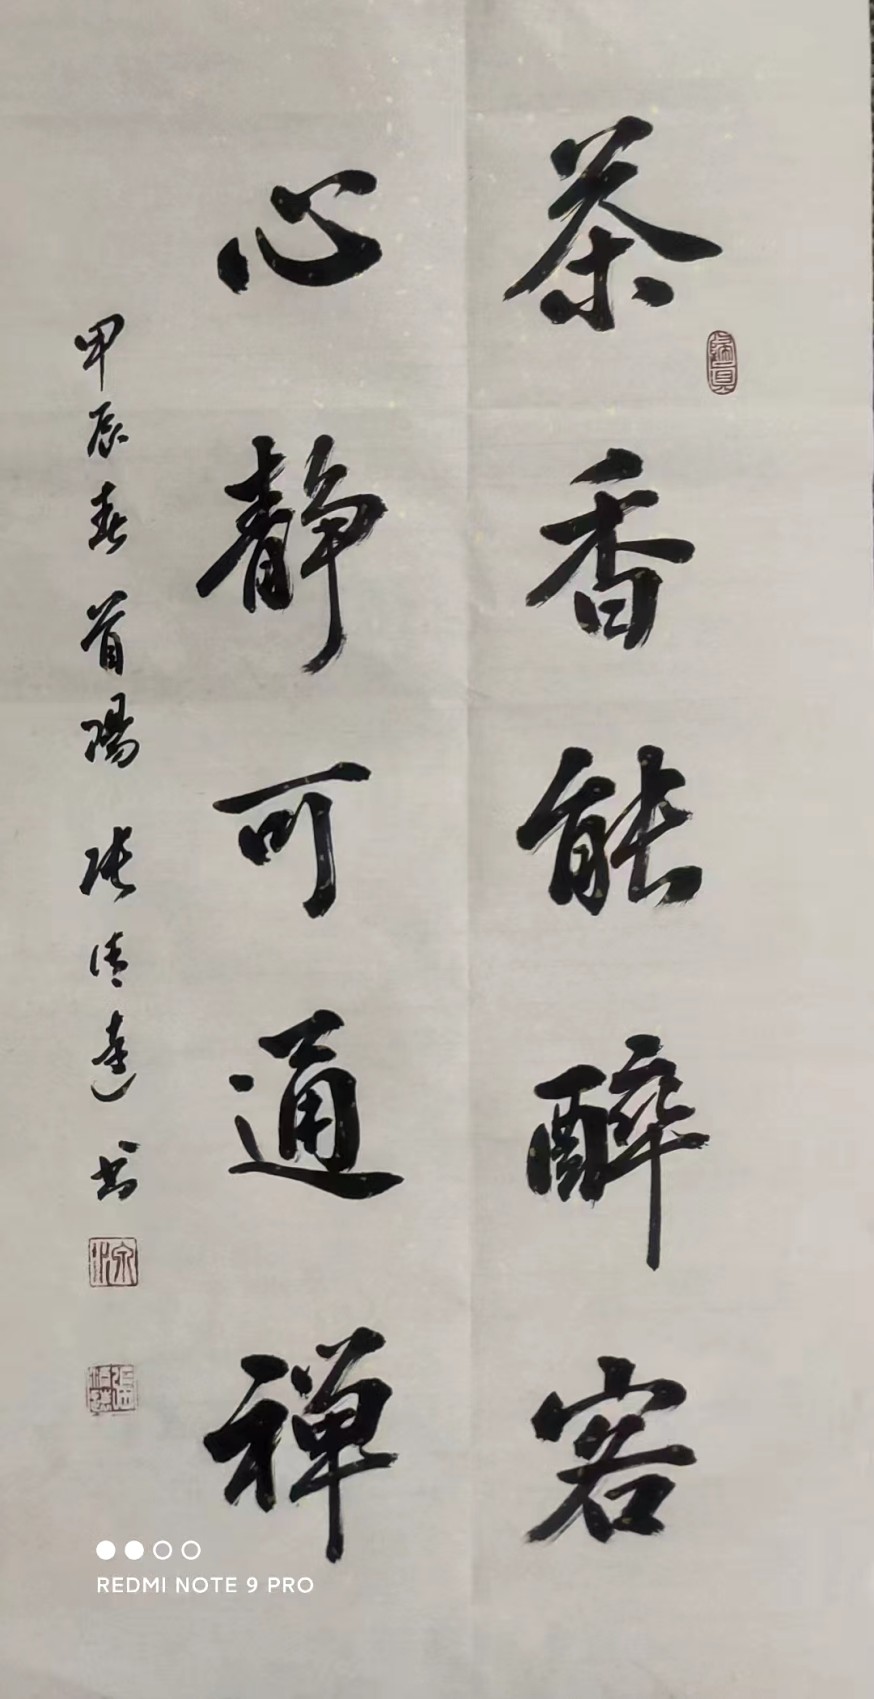 茶香能醉客
心静可通禅
甲辰春首陽张清達书
REDMI NOTE 9 PRO